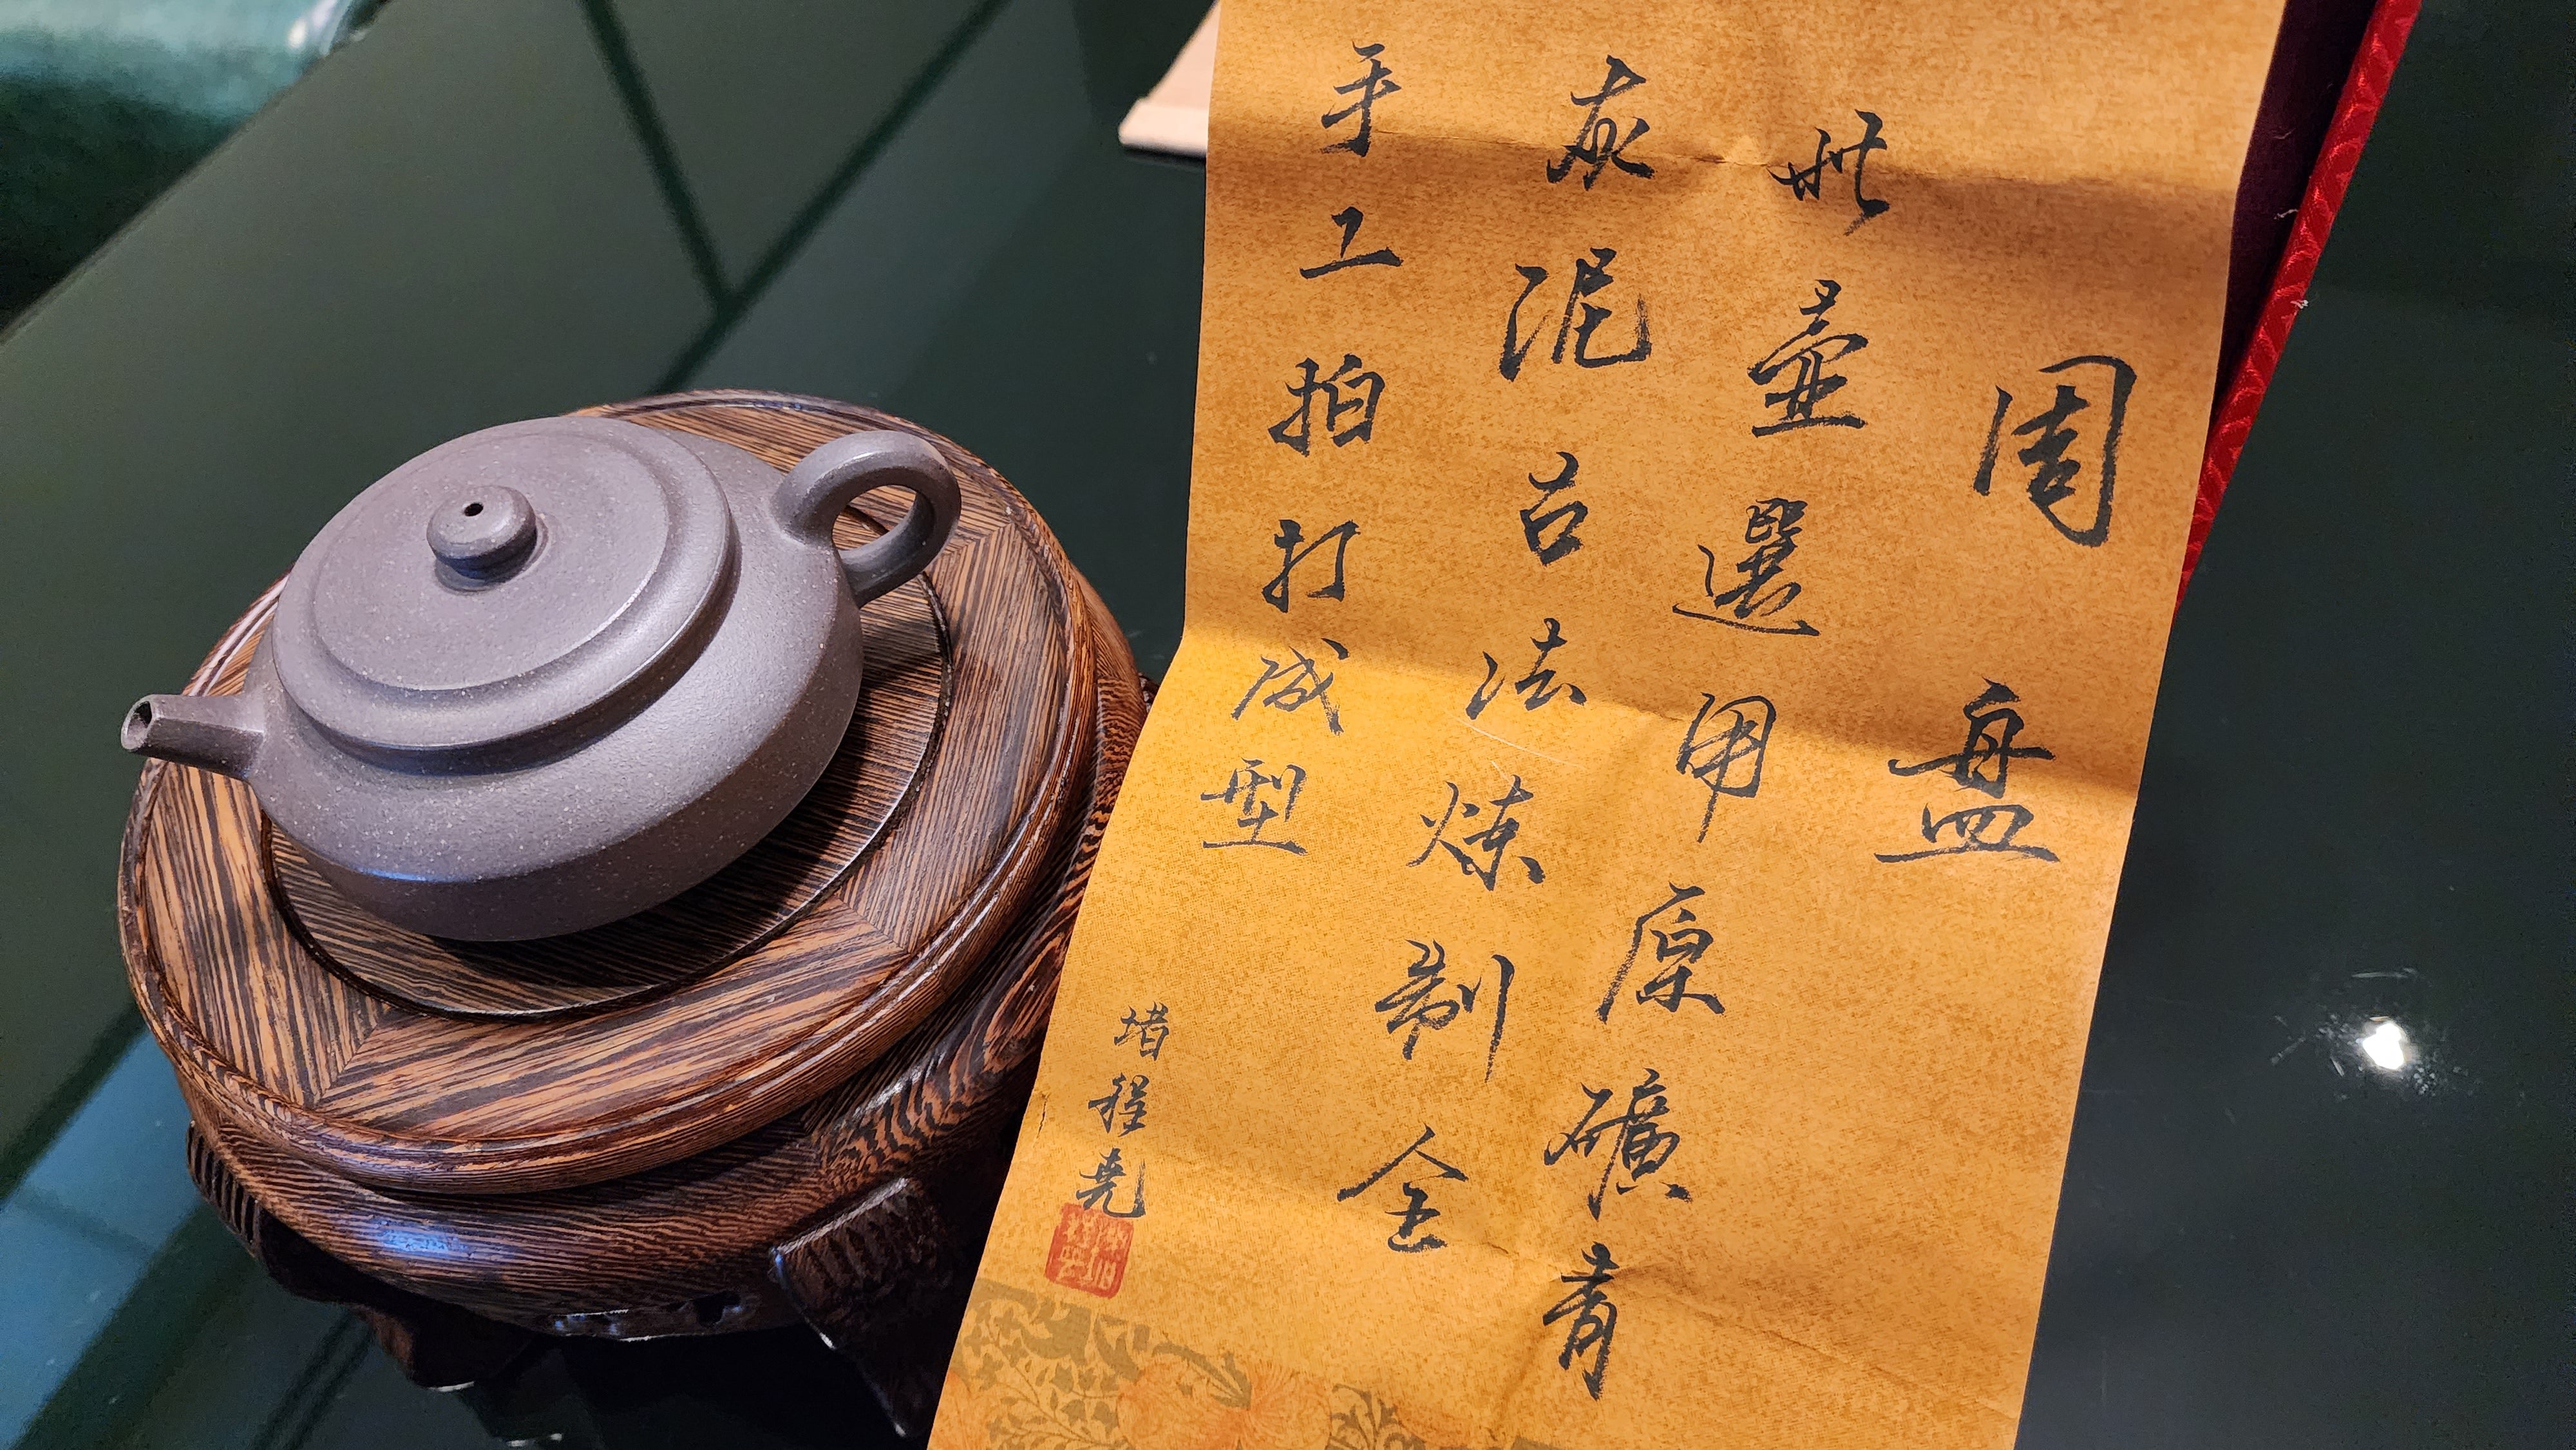 周盘
此壶選用原礦青
灰泥古法炼制全
手工拍打成型
堵程尧